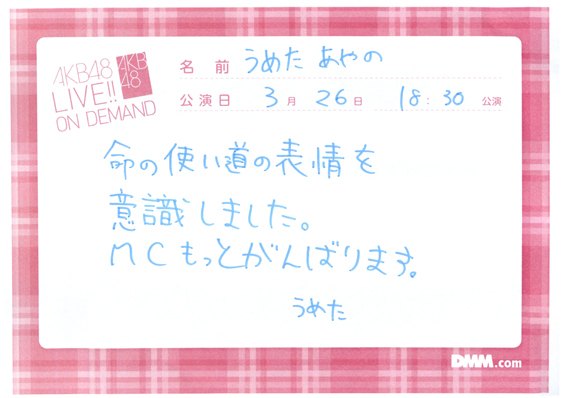 AKB48
LIVE!!
ON DEMAND
AKB
48
名 前 うめた あやの
公演日 3月 26日 18:30 公演
命の使い道の表情を
意識しました。
MCもっとがんばります。
うめた
DMM.com